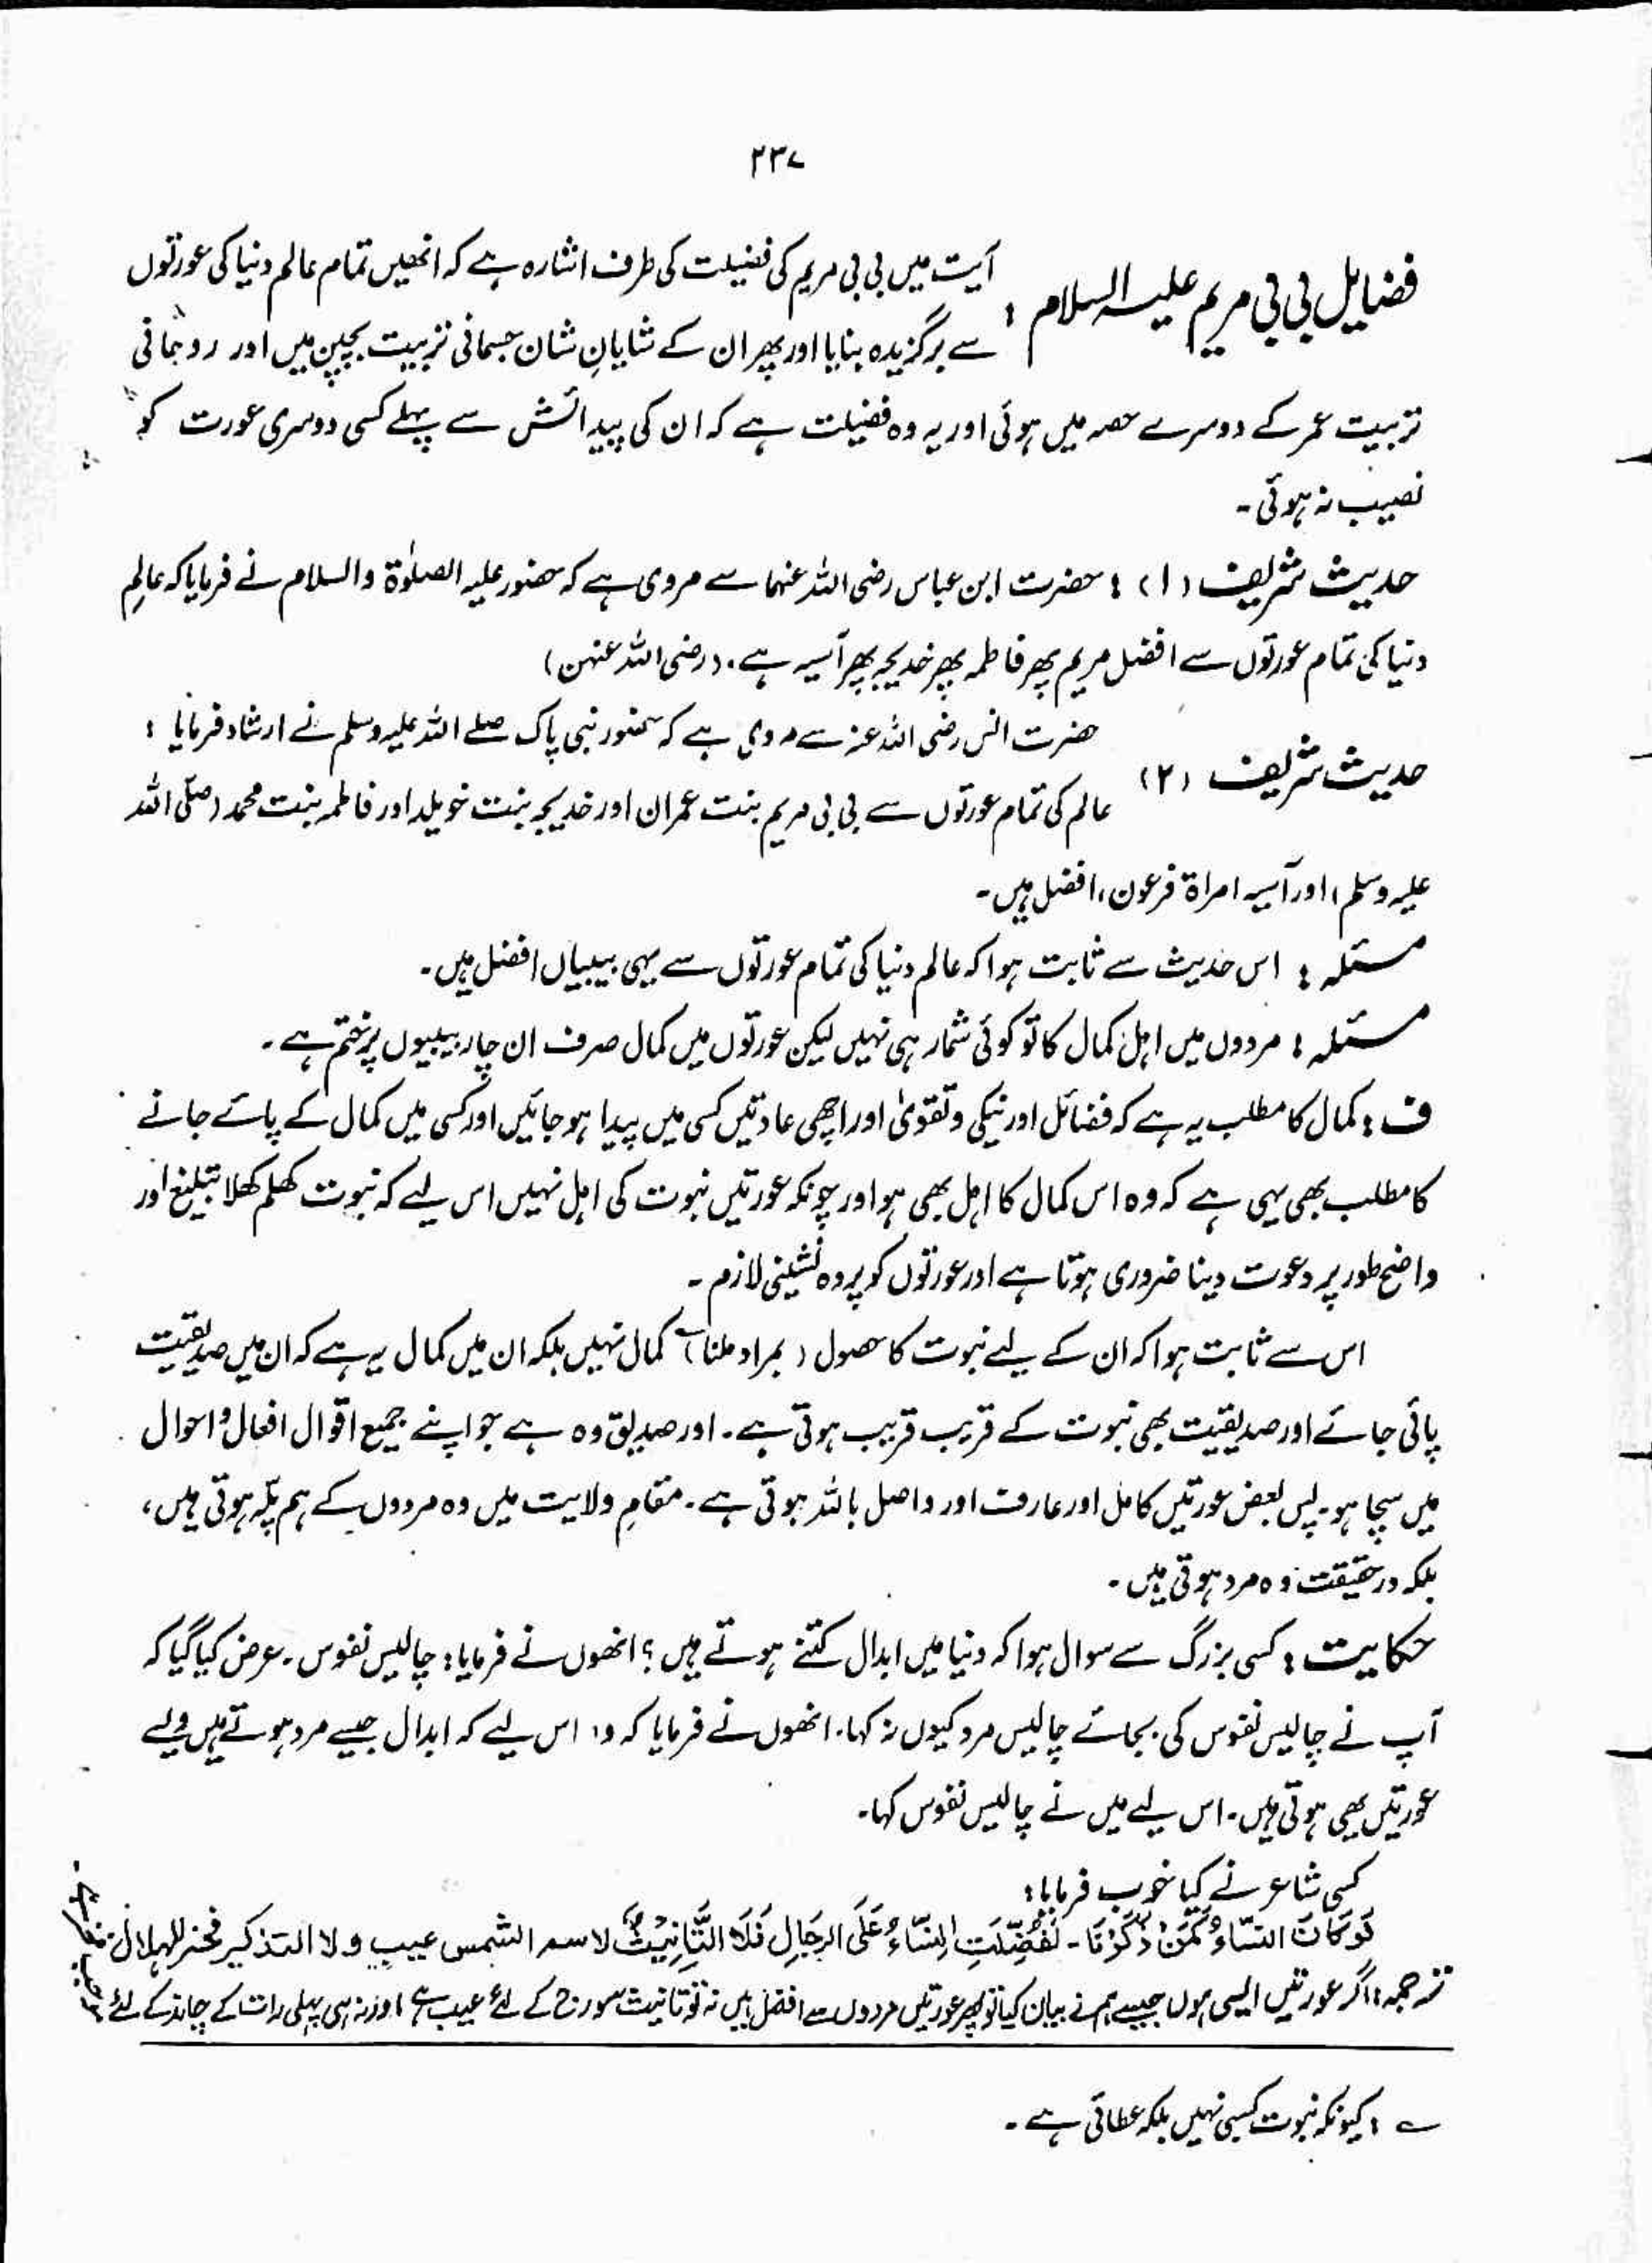 ۲۳۷
فضایل بی بی مریم علیہ السلام :
آیت میں بی بی مریم کی فضیلت کی طرف اشارہ ہے کہ انھیں تمام عالم دنیا کی عورتوں
سے برگزیدہ بنایا اور پھر ان کے شایانِ شان جسمانی تربیت بچپن میں اور روحانی
تربیت عمر کے دوسرے حصہ میں ہوئی اور یہ وہ فضیلت ہے کہ ان کی پیدائش سے پہلے کسی دوسری عورت کو
نصیب نہ ہوئی ۔
حدیث شریف (۱) : حضرت ابن عباس رضی اللہ عنہما سے مروی ہے کہ حضور علیہ الصلوٰۃ والسلام نے فرمایا کہ عالمِ
دنیا کی تمام عورتوں سے افضل مریم پھر فاطمہ پھر خدیجہ پھر آسیہ ہے ۔ (رضی اللہ عنہن)
حدیث شریف (۲)
حضرت انس رضی اللہ عنہ سے مروی ہے کہ حضور نبی پاک صلے اللہ علیہ وسلم نے ارشاد فرمایا :
عالم کی تمام عورتوں سے بی بی مریم بنت عمران اور خدیجہ بنت خویلد اور فاطمہ بنت محمد (صلّی اللہ
علیہ وسلم) اور آسیہ امراۃ فرعون، افضل ہیں ۔
مسئلہ : اس حدیث سے ثابت ہوا کہ عالم دنیا کی تمام عورتوں سے یہی بیبیاں افضل ہیں ۔
مسئلہ : مردوں میں اہل کمال کا تو کوئی شمار ہی نہیں لیکن عورتوں میں کمال صرف ان چار بیبیوں پر ختم ہے ۔
ف : کمال کا مطلب یہ ہے کہ فضائل اور نیکی و تقویٰ اور اچھی عادتیں کسی میں پیدا ہو جائیں اور کسی میں کمال کے پائے جانے
کا مطلب بھی یہی ہے کہ وہ اس کمال کا اہل بھی ہو اور چونکہ عورتیں نبوت کی اہل نہیں اس لیے کہ نبوت کھلم کھلا تبلیغ اور
واضح طور پر دعوت دینا ضروری ہوتا ہے اور عورتوں کو پردہ نشینی لازم ۔
اس سے ثابت ہوا کہ ان کے لیے نبوت کا حصول (بمراد ملنا) ؎ کمال نہیں بلکہ ان میں کمال یہ ہے کہ ان میں صدیقیت
پائی جائے اور صدیقیت بھی نبوت کے قریب قریب ہوتی ہے ۔ اور صدیق وہ ہے جو اپنے جمیع اقوال افعال و احوال
میں سچا ہو ۔ پس بعض عورتیں کامل اور عارف اور واصل باللہ ہوتی ہے ۔ مقامِ ولایت میں وہ مردوں کے ہم پلّہ ہوتی ہیں،
بلکہ درحقیقت وہ مرد ہوتی ہیں ۔
حکایت : کسی بزرگ سے سوال ہوا کہ دنیا میں ابدال کتنے ہوتے ہیں ؟ انھوں نے فرمایا : چالیس نفوس ۔ عرض کیا گیا کہ
آپ نے چالیس نفوس کی بجائے چالیس مرد کیوں نہ کہا ۔ انھوں نے فرمایا کہ وہ اس لیے کہ ابدال جیسے مرد ہوتے ہیں ویسے
عورتیں بھی ہوتی ہیں ۔ اس لیے میں نے چالیس نفوس کہا ۔
کسی شاعر نے کیا خوب فرمایا :
لَوْ كَانَ النِّسَاءُ كَمَنْ ذَكَرْنَا ۔ لَفُضِّلَتِ النِّسَاءُ عَلَى الرِّجَالِ فَلَا التَّانِيْثُ لاسم الشمس عيب ولا التذكير فخر للهلال
ترجمہ : اگر عورتیں ایسی ہوں جیسے ہم نے بیان کیا تو پھر عورتیں مردوں سے افضل ہیں نہ تو تانیث سورج کے لئے عیب ہے اور نہ ہی پہلی رات کے چاند کے لئے
موجبِ فخر ہے ۔
؎ : کیونکہ نبوت کسبی نہیں بلکہ عطائی ہے ۔